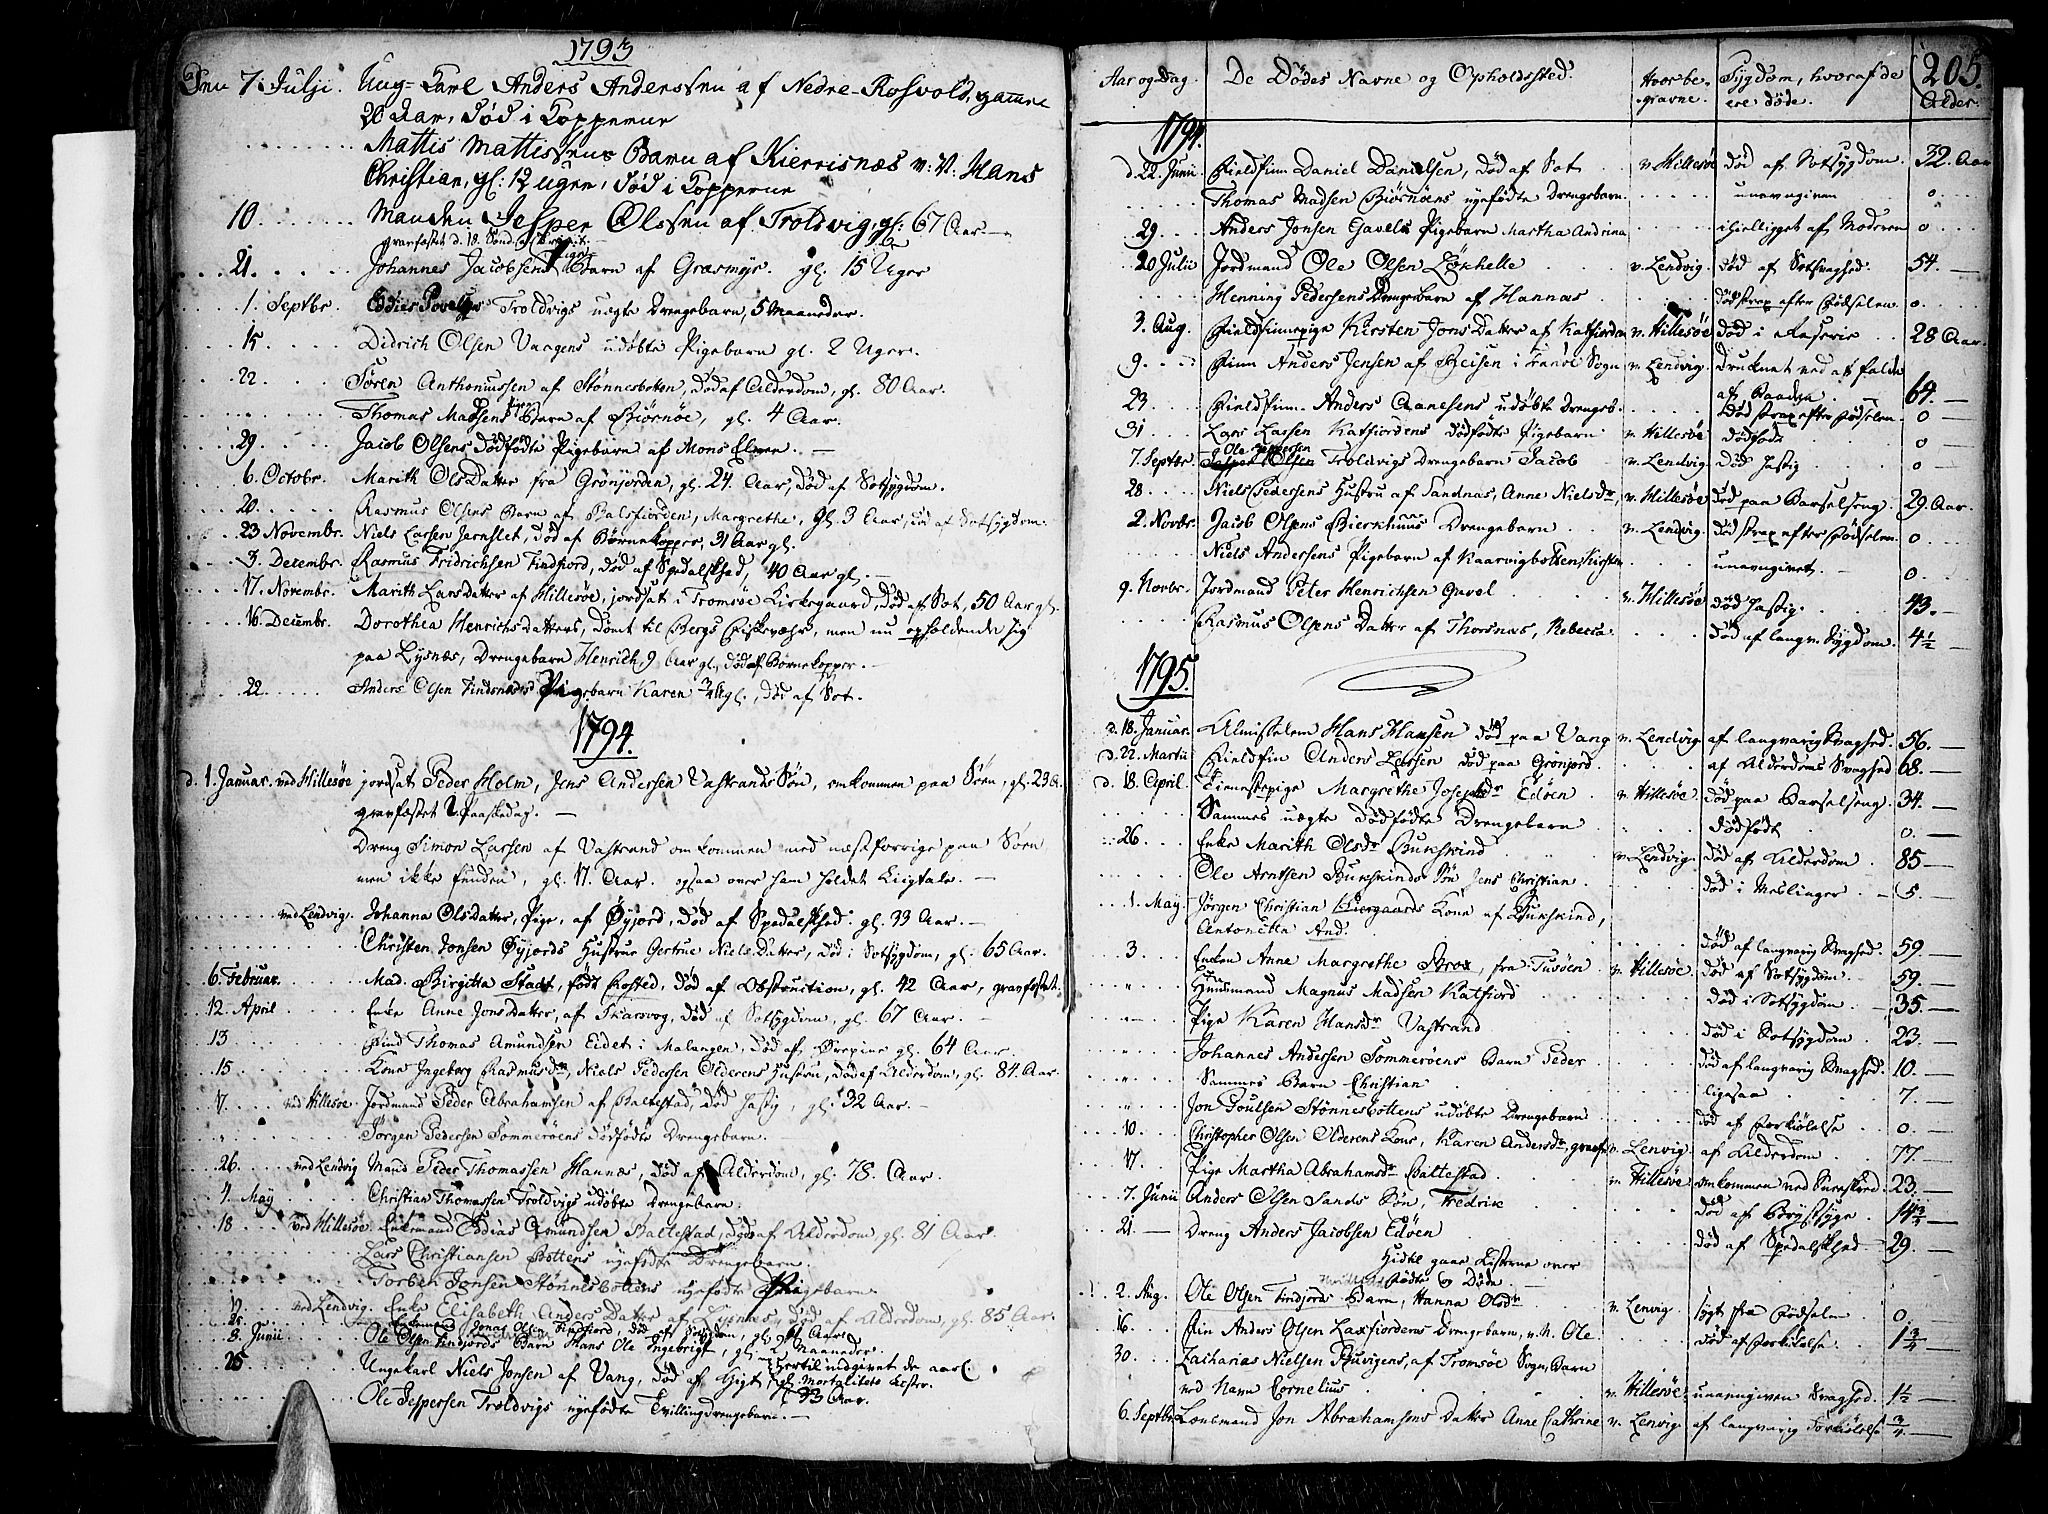 1793
Den 7. Julji. Ung-Karl Anders Anderssen af Nedre-Rosvold, gamme
20 Aar, død i Kopperne
Mattis Mattissens Barn af Kierrisnæs v: N: Hans
Christian, gl: 12 Uger, død i Kopperne
10 Manden Jesper Olssen af Troldvig, gl: 67 Aar
21. Johannes Jacobsens Pige Barn af Græsmyr. gl. 15 Uger
1. Septbr. Troldvigs uægte Drengebarn, 5 Maaneder.
15 Didrich Olsen Vaagens udøbte Pigebarn gl. 2 Uger.
22 Søren Anthoniussen af Stønnesbotten, død af Alderdom, gl. 80 Aar.
" Thomas Madsens Barn af Biørnøe, gl. 4 Aar.
29 Jacob Olsens dødfødte Pigebarn af Mons Elven.
6. Octobr. Marith OlsDatter fra Grönjorden, gl. 24. Aar, død af Sotsygdom.
20. Rasmus Olsens Barn af Balsfiorden, Margrethe, gl. 3 Aar, død af Sotsygdom.
23 Novembr. Niels Larsen Jernslet, død af Børnekopper, 31 Aar gl.
3. Decembr. Rasmus Fridrichsen Findfiord, død af Spedalskhed, 40 Aar gl.
17. Novembr. Marith LarsDatter af Hillesøe, jordsat i Tromsøe Kirkegaard, død af Sot, 50 Aar gl.
16 Decembr. Dorothea HenrichsDatters, dømt til Bergs Fiskevæhr, men nu opholdende sig
paa Lysnæs, Drengebarn Henrich, 9 Aar gl, død af Børnekopper.
22. Anders Olsen Findsnæs Pigebarn Karen gl. død af Sot.
1794.
d. 1. Januar. ved Hillesøe jordsat Peder Holm, Jens Andersen Vastrands Søn, omkommen paa Søen, gl. 23 A.
gravfæstet 2. Paaskedag.
Dreng Simon Larsen af Vastrand omkommen med næstforrige paa Søen
men ikke funden, gl. 17. Aar. ogsaa over ham holdet Liigtale.
ved Lendvig. Johanna Olsdatter, Pige, af Øyjord, død af Spedalskhed. gl. 33 Aar.
Christen Jonsen Øyjords Hustrue Gertrue NielsDatter, død i Sotsygdom, gl. 65 Aar.
6. Februar. Mad. Birgitta Stadt, født Rosted, død af Obstruction, gl. 42 Aar, gravfæstet.
12. April Enke Anne JonsDatter, af Skarsvog, død af Sotsygdom, gl. 67 Aar.
13 Find Thomas Amundsen Eidet i Malangen, død af gl. 64 Aar.
15 Kone Ingeborg Rasmusdr, Niels Pedersen Olderens Hustru, død af Alderdom, gl. 84. Aar
17 ved Hillesøe. Jordmand Peder Abrahamsen af Baltestad, død hastig, gl. 32 Aar.
" Jørgen Pedersen Sommerøens dødfødte Drengebarn.
26 ved Lendvig Mand Peder Thomassen Hannæs, død af Alderdom, gl. 78. Aar.
4. May Christian Thomassen Troldvigs udøbte Drengebarn.
18 ved Hillesøe. Enkemand Tobias Amundsen Baltestad, død af Alderdom, gl. 81 Aar.
Lars Christiansen Bottens nyefødte Drengebarn.
Torben Jonsen Stønnesbottens nyefødte Pigebarn
12. ved Lendvig. Enke Elisabeth AndersDatter af Lysnæs, død af Alderdom, gl. 85 Aar.
25 Enkemand Jonas Olsen Findfiord, død af Sotsygdom, gl. Aar
8. Junii Ole Olsen Findfiords Barn Hans Ole Ingebrigt, gl. 2 Maaneder.
25 Ungekarl Niels Jonsen af Vang, død af Gigt, 33 Aar.
hertil indgivet de aarl. Mortalitets Lister.
Ole Jespersen Troldvigs nyefødte Tvillingdrengebarn.
205.
Aar og Dag. De Dødes Navne og Opholdssted. Hvor begravne. Sygdom, hvoraf de ere døde. Alder.
1794.
d. 22. Junii Fieldfinn Daniel Danielsen, død af Sot v. Hillesøe død af Sotsygdom. 32. Aar
Thomas Madsen Biørnöens nyefødte Drengebarn. unavngiven 0
29 Anders Jonsen Gavels Pigebarn Martha Andrina ihielligget af Moderen 0
20 Julii Jordmand Ole Olsen Løkhelle v. Lendvig død af Sotsvaghed. 54.
Henning Pedersens Drengebarn af Hannæs død strax efter Fødselen. 0.
3. Aug. Fieldfinnepige Kirsten JonsDatter af Katfiorden v. Hillesøe død i Raserie 28 Aar.
9. Finn Anders Jensen af Reisen i Tranöe Sogn v. Lendvig. Druknet ved at falde
af Baaden 64.
23 Fieldfinn Anders Aanesens udøbte Drengeb. død strax efter Fødselen 0
31 Lars Larsen Katfiordens dødfødte Pigebarn v. Hillesøe dødfødt 0
7. Septbr. Ole Jespersen Troldvigs Drengebarn Jacob v. Lendvig død hastig 0
28 Niels Pedersens Hustru af Sandnæs, Anne Nielsdr, v. Hillesøe død paa Barselseng. 29 Aar.
2. Novbr. Jacob Olsens Bierkhaus Drengebarn v. Lendvig. død strax efter Fødselen 0.
Niels Andersens Pigebarn af Kaarvigbotten, Kirsten unavngivet. 0.
9. Novbr. Jordmand Peter Henrichsen Gavel v. Hillesøe død hastig 43.
Rasmus Olsens Datter af Thorsnæs, Rebecca død af langv. Sygdom. 4½
1795.
d. 18. Januar. Almisselem Hans Hansen død paa Vang v. Lendvig. af langvarig Svaghed. 56.
d. 22. Martii Fieldfin Anders Larssen død paa Grönjord. af Alderdoms Svaghed 68.
d. 18. April. Tienestepige Margrethe Josephsdr Edøen v. Hillesøe. død paa Barselseng. 34.
Sammes uægte dødfødte Drengebarn dødfødt 0.
26 Enke Marith Olsdr Bukskind v. Lendvig. død af Alderdom. 85
Ole Arntsen Bukskinds Søn Jens Christian død i Meslinger 5
1. May. Jørgen Christian Kiergaards Kone af Bukskind,
Antonetta And. død af langvarig Svaghed. 59.
3 Enken Anne Margrethe Brox, fra Tusöen v. Hillesøe. død af Sotsygdom. 59.
" Huusmand Magnus Madsen Katfiord død i Sotsygdom 35.
" Pige Karen Hansdr Vastrand død i Sotsygdom. 23.
" Johannes Andersen Sommerøens Barn Peder død af langvarig Svaghed. 10.
" Sammes Barn Christian ligesaa 7.
" Jon Poulsen Stønnesbottens udøbte Drengebarn død af Forkiølelse 0.
10 Christopher Olsen Olderens Kone, Karen Andersdr, gravf. v. Lenvig. af Alderdom. 77.
17. Pige Martha Abrahamsdr Baltestad v. Hillesøe omkommen ved Sneeskred. 23.
7. Junii Anders Olsen Sands Søn, Fredrik død af Brystsyge. 14¾
21. Dreng Anders Jacobsen Edøen død af Spedalskhed 29.
Hidtil gaae Listerne over
Fødte og Døde.
2. Aug. Ole Olsen Findjords Barn, Hanna Olsdr v. Lenvig. sygt fra Fødselen 0.
16. Fin Anders Olsen Laxfiordens Drengebarn, v. N. Ole. død af Forkiølelse 1¾
30 Zacharias Nielsen af Tromsøe Sogn, Barn
ved Navn Cornelius v. Hillesøe. unavngiven Svaghed. 1½
6. Septbr. Lensmand Jon Abrahamsens Datter Anne Cathrine v. Lenvig. af langvarig Forkiølelse ¾